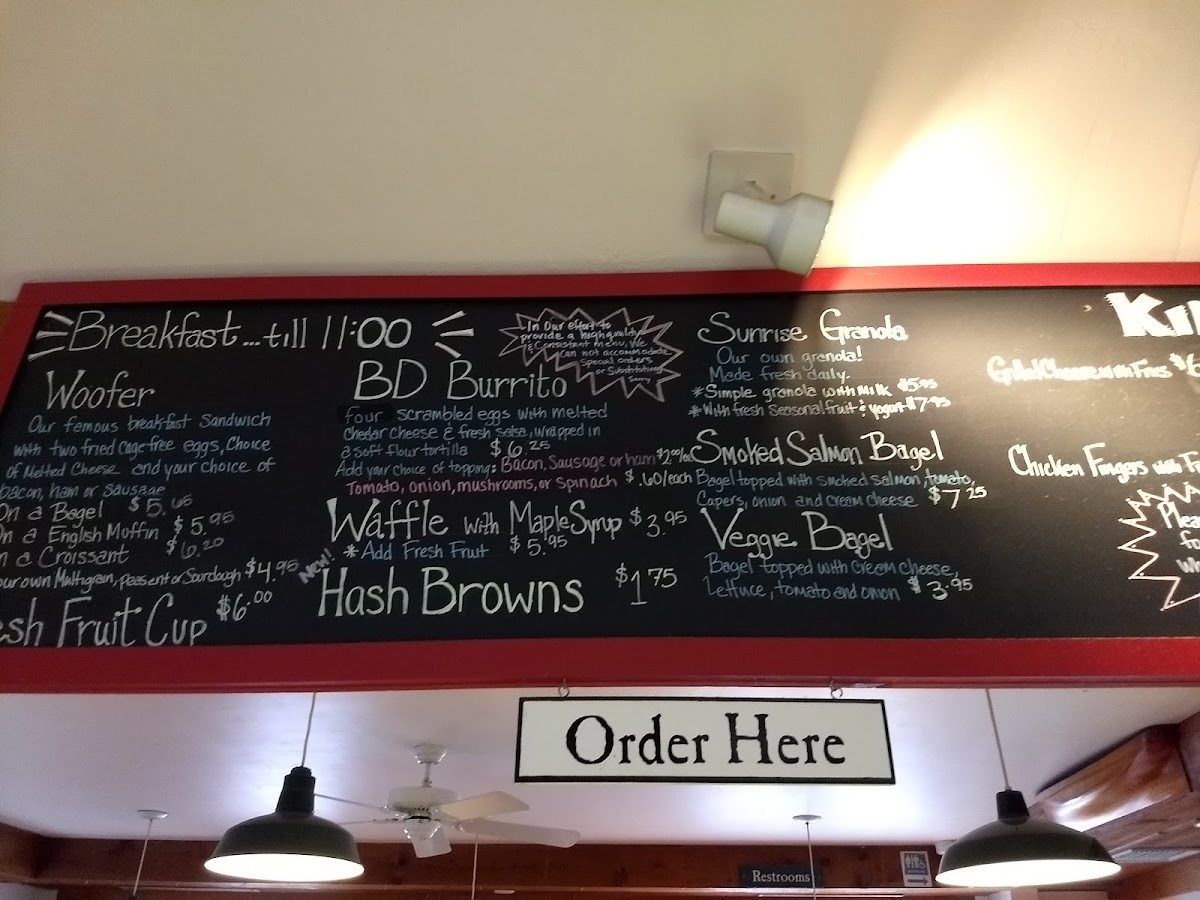 Breakfast...till 11:00
Woofer
Our famous breakfast Sandwich
with two fried cage free eggs, Choice
of Melted Cheese and your choice of
bacon, ham or sausage
On a Bagel $5.
On a English Moffin $5.95
n a Croissant $6.20
our own Multigrain, peasent or Sourdough $4.95
sh Fruit Cup $6.00
In our effort to
provide a high quality
& Consistent menu, We
Can not accommodate
Special orders
or Substitutions
Sorry
BD Burrito
four scrambled eggs with melted
Chedar Cheese & fresh salsa, wrapped in
a soft flour tortilla $6.25
Add your choice of topping: Bacon, Sausage or ham $2.00/ea
Tomato, onion, mushrooms, or Spinach $.60/each
Waffle with Maple Syrup $3.95
*Add Fresh Fruit $5.95
New!
Hash Browns $1.75
Sunrise Granola
Our own granola!
Made fresh daily.
*Simple granola with Milk $5.95
*With fresh Seasonal fruit & yogurt $7.95
Smoked Salmon Bagel
Bagel topped with smoked salmon, tomato,
Capers, onion and cream cheese $7.25
Veggie Bagel
Bagel topped with cream cheese,
Lettuce, tomato and onion $3.95
Ki
Grilled Cheese with Fries $6
Chicken Fingers with F
Plea
fo
wh
Order Here
Restrooms